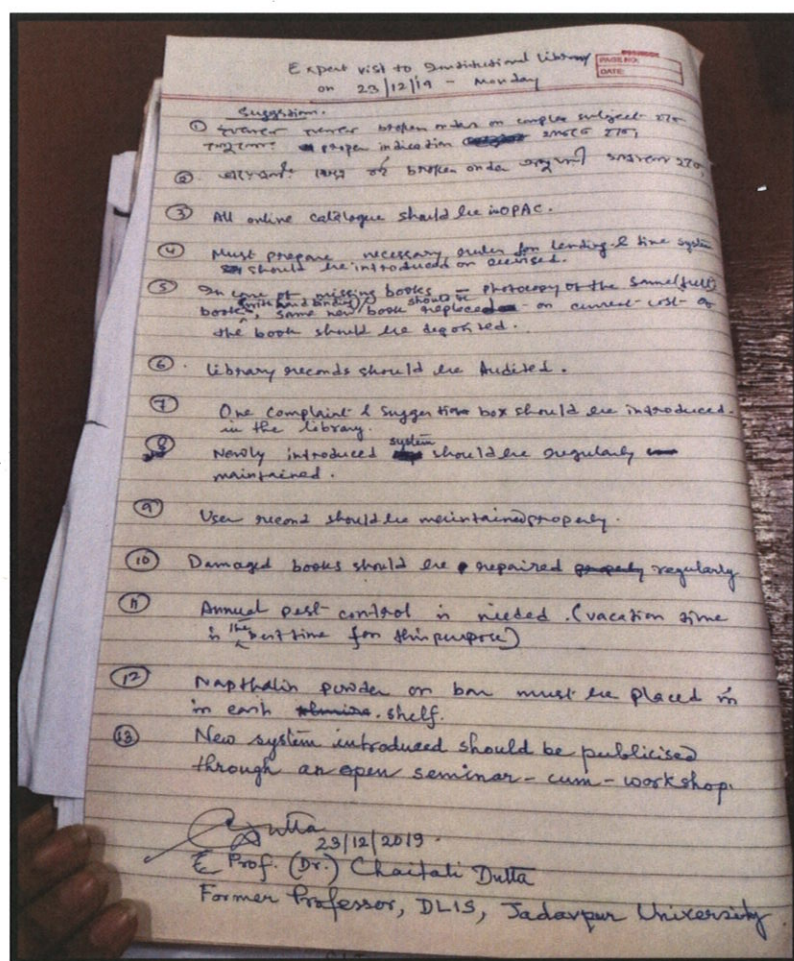 Expert visit to Institutional Library
on 23/12/19 - Monday
PAGE NO.
DATE:
Suggestion.
① broken order on complex subject
proper indication
② broken order
③ All online catalogue should be in OPAC.
④ Must prepare necessary rules for lending & fine system
should be introduced or revised.
⑤ In case of missing books = photocopy of the same (full)
books (with hard binding), same new book should be replaced - or current cost of
the book should be deposited.
⑥. Library records should be Audited.
⑦ One complaint & suggestion box should be introduced
in the library.
⑧ Newly introduced system should be regularly
maintained.
⑨ User record should be maintained properly.
⑩ Damaged books should be repaired regularly
⑪ Annual pest control is needed. (vacation time
is the best time for this purpose)
⑫ Napthalin powder or bar must be placed in
in each shelf.
⑬ New system introduced should be publicised
through an open seminar-cum-workshop.
CDutta
23/12/2019.
Prof. (Dr.) Chaitali Dutta
Former Professor, DLIS, Jadavpur University.